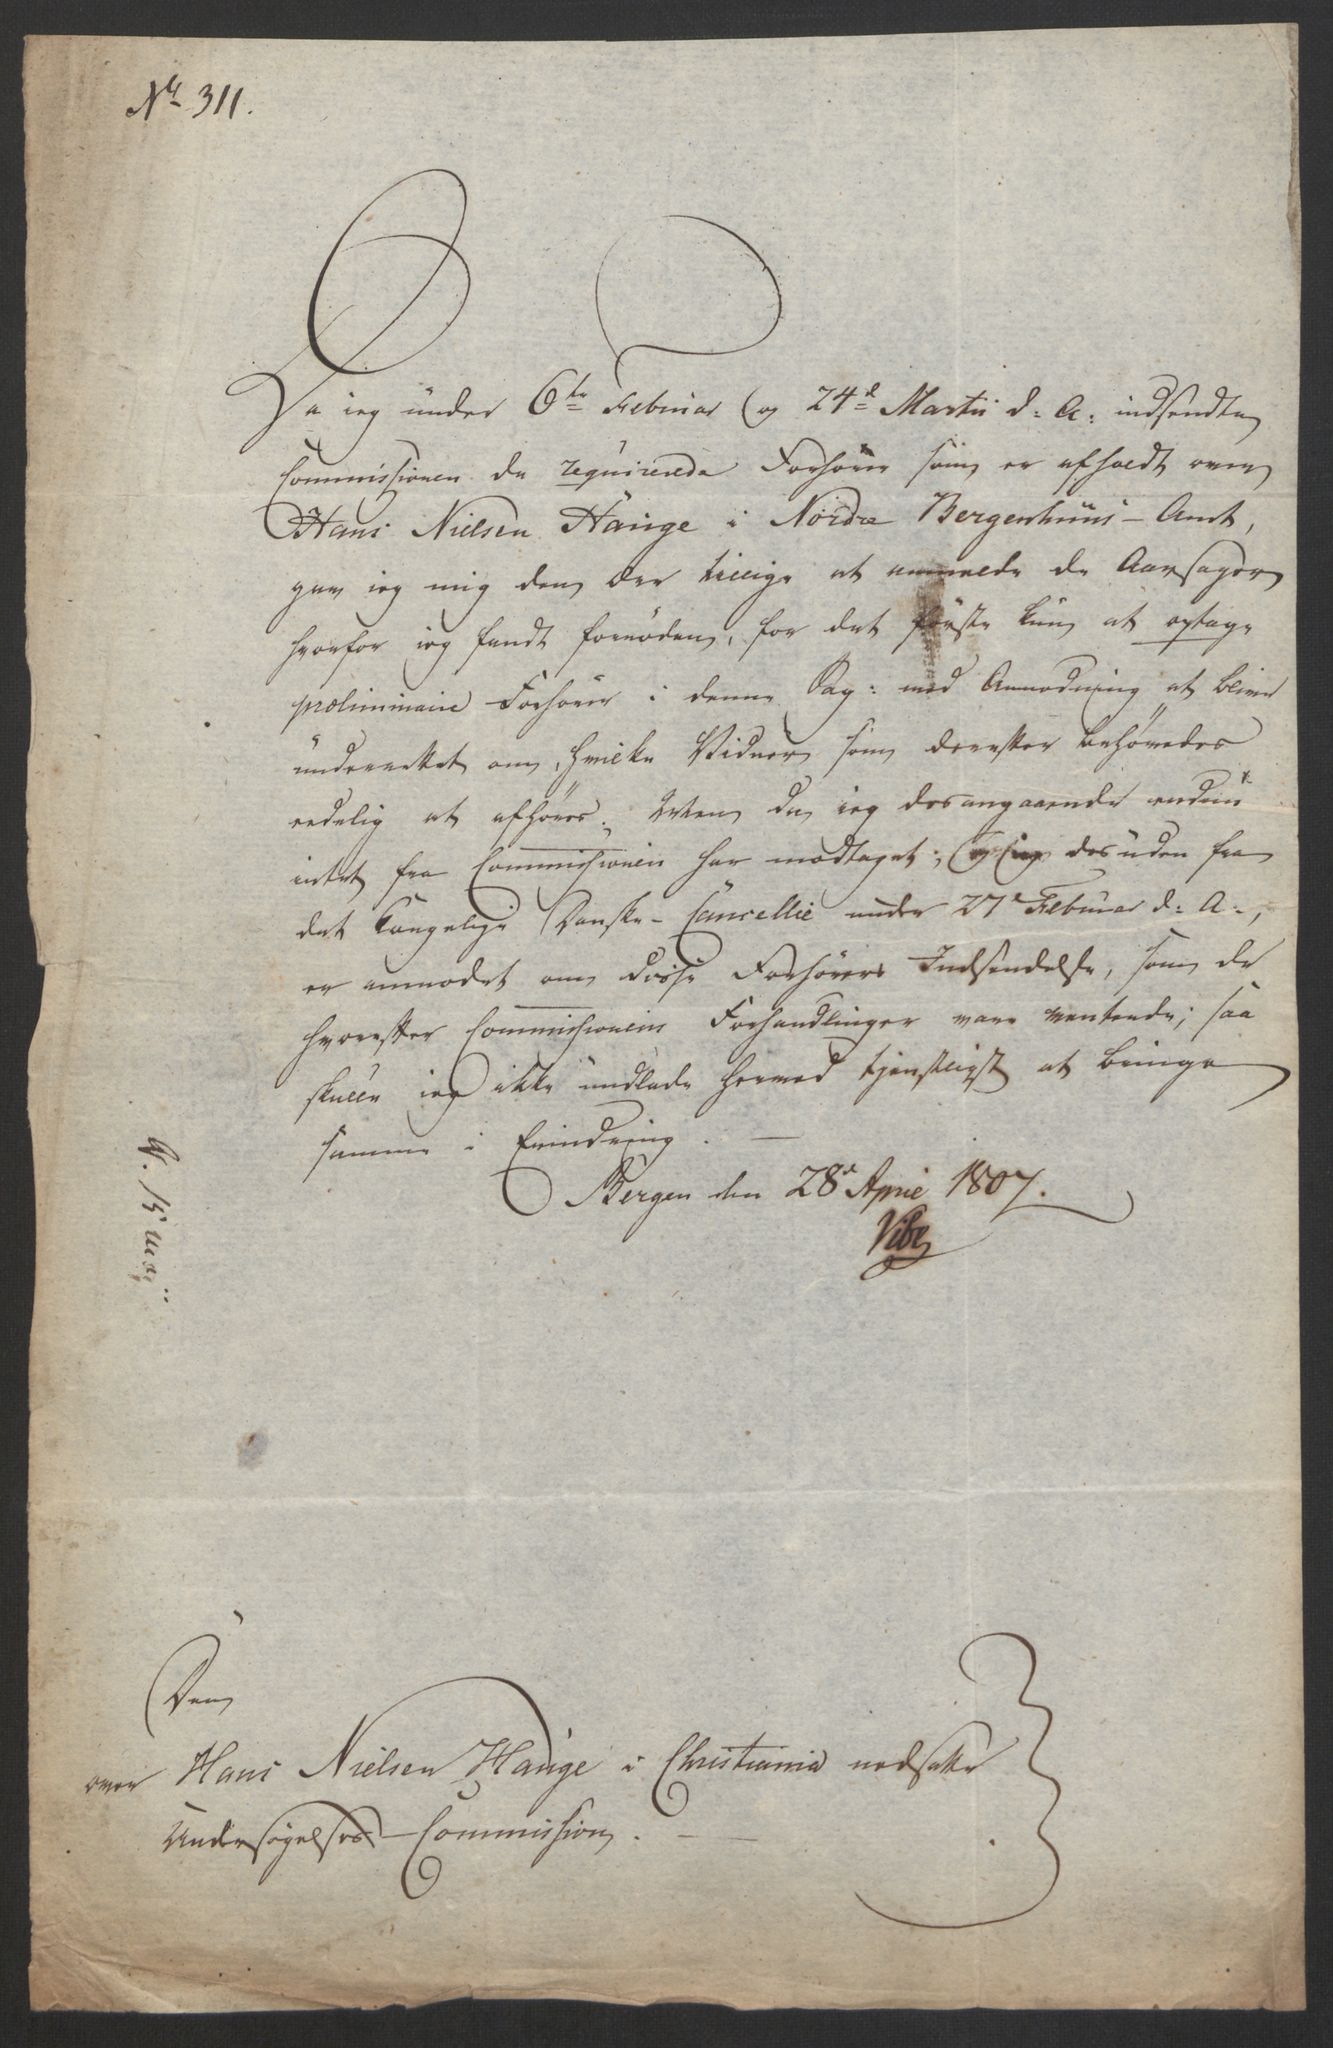 No 311.
Da ieg under 6te Februar og 24d Martii d: A: indsendte
Commissionen de requirerede Forhører som er afholdt over
Hans Nielsen Hauge i Nordre Bergenhuus-Amt,
gav ieg mig den Ære tillige at anmelde de Aarsager
hvorfor ieg fandt fornøden, for det første kun at optage
præliminaire Forhører i denne Sag: med Anmodning at blive
underrettet om, hvilke Vidner som derefter behøvedes
eedelig at afhøres. Men da ieg desangaaende endnu
intet fra Commissionen har modtaget; og ieg desuden fra
det Kongelige Danske-Cancellie under 27e Februar d: A:,
er anmodet om disse Forhørers Indsendelse, som de
hvorefter Commissionens Forhandlinger vare ventende; saa
skulle ieg ikke undlade herved tjenstligst at bringe
samme i Erindring. —
Bergen den 28e April 1807.
Vibe
Den
over Hans Nielsen Hauge i Christiania nedsatte
Undersøgelses-Commission. —